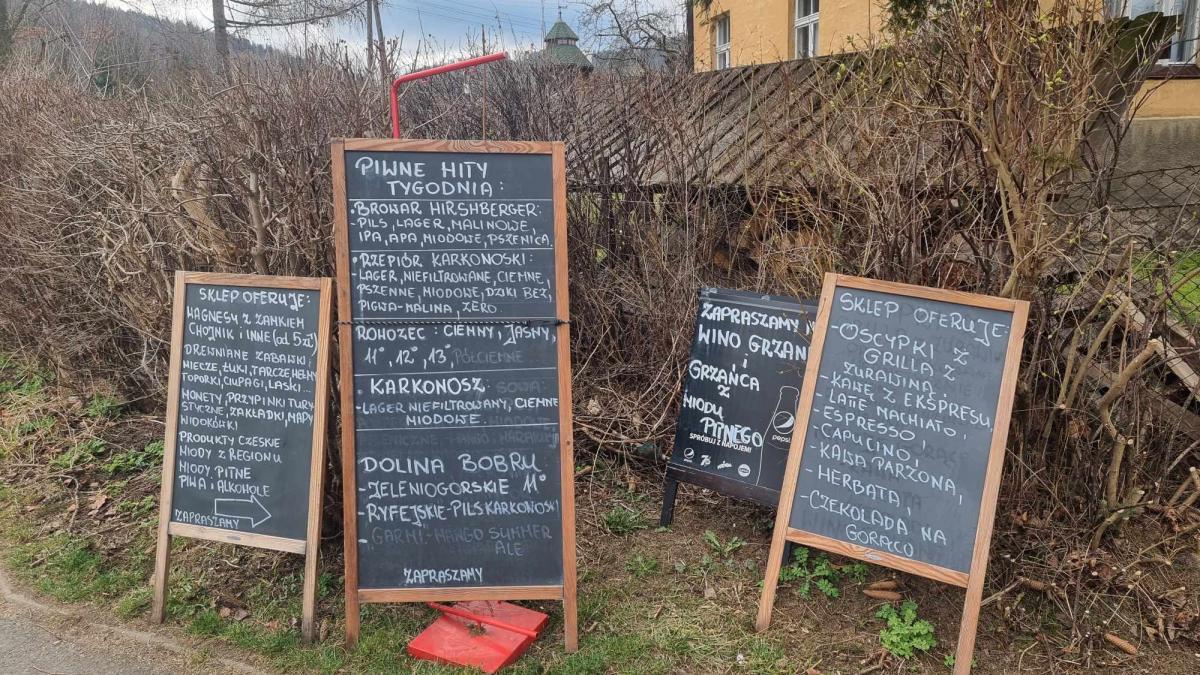 SKLEP OFERUJE:
MAGNESY Z ZAMKIEM
CHOJNIK I INNE (od 5zł)
DREWNIANE ZABAWKI
MIECZE, ŁUKI, TARCZE, HEŁMY
TOPORKI, CIUPAGI, LASKI...
MONETY, PRZYPINKI TURY
STYCZNE, ZAKŁADKI, MAPY
WIDOKÓWKI
PRODUKTY CZESKIE
MIODY Z REGIONU
MIODY PITNE
PIWA i ALKOHOLE
ZAPRASZAMY
PIWNE HITY
TYGODNIA:
• BROWAR HIRSHBERGER:
- PILS, LAGER, MALINOWE,
IPA, APA, MIODOWE, PSZENICA,
• RZEPIÓR KARKONOSKI:
- LAGER, NIEFILTROWANE, CIEMNE,
PSZENNE, MIODOWE, DZIKI BEZ,
PIGWA-MALINA, ZERO.
ROHOZEC: CIEMNY, JASNY,
11°, 12°, 13°, PÓŁCIEMNE
KARKONOSZ:
- LAGER NIEFILTROWANY, CIEMNE
MIODOWE.
DOLINA BOBRU
- JELENIOGORSKIE 11°
- RYFEJSKIE - PILS KARKONOSKI
- GARM! - MANGO SUMMER
ALE
ZAPRASZAMY
ZAPRASZAMY N
WINO GRZAN
i
GRZAŃCA
Z
MIODU
PITNEGO
SPRÓBUJ Z NAPOJEM!
pepsi
SKLEP OFERUJE:
- OSCYPKI Z
GRILLA Z
ŻURAWINĄ,
- KAWĘ Z EKSPRESU,
- LATE MACHIATO,
- ESPRESSO,
- CAPUCINO,
- KAWA PARZONA,
- HERBATA,
- CZEKOLADA NA
GORĄCO